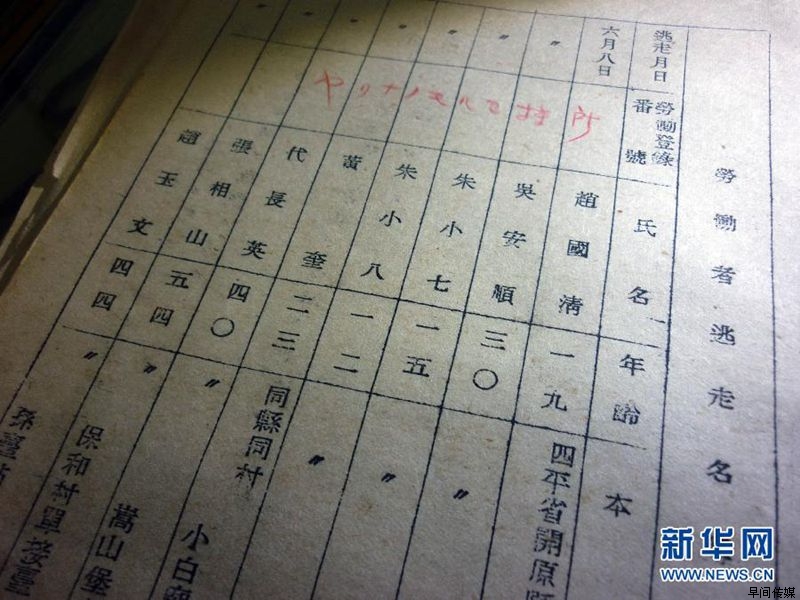 勞働者逃走名
逃走月日 勞働登錄番號 氏名 年齡 本
六月八日 趙國清 一九 四平省開原
〃 吳安順 三〇 〃
〃 朱小七 一五 〃
〃 朱小八 一二 〃
〃 黃奎 二三 同縣同村
〃 代長英 四〇 〃 小白
張相山 五四 〃 嵩山堡
趙玉文 四四 〃 保和村單發臺
新华网
WWW.NEWS.CN
早间传媒